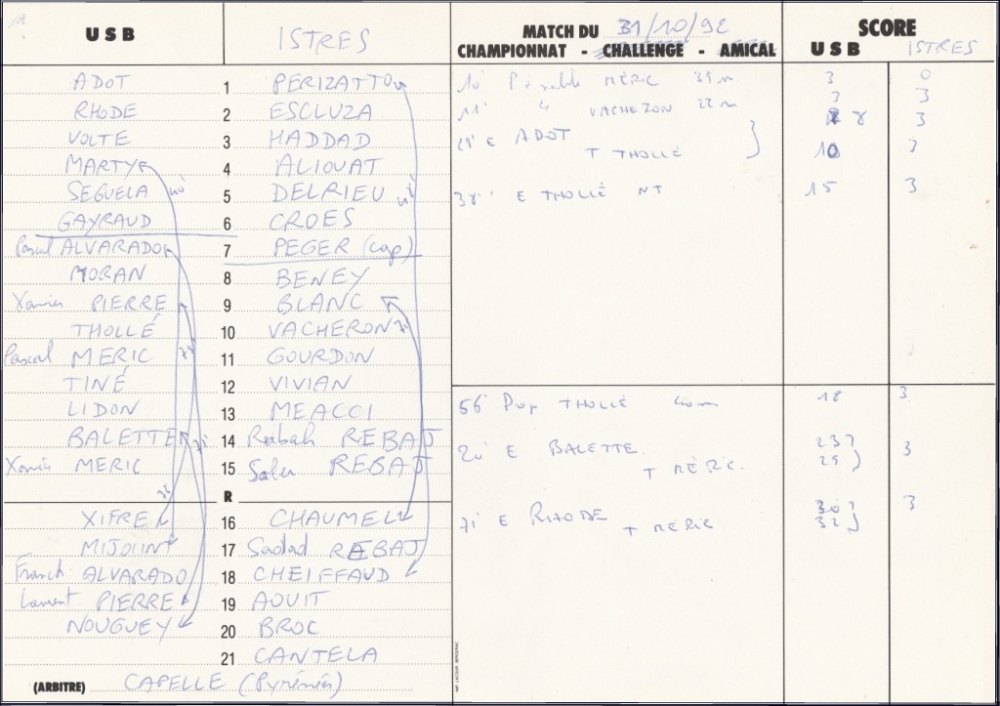 USB ISTRES
MATCH DU 31/10/92
CHAMPIONNAT - CHALLENGE - AMICAL
SCORE
USB ISTRES
ADOT 1 PERIZATTO
RHODE 2 ESCLUZA
VOLTE 3 HADDAD
MARTY 4 ALIOUAT
SEGUELA 5 DELRIEU
GAYRAUD 6 CROES
Pascal ALVARADO 7 PEGER (cap)
MORAN 8 BENEY
Xavier PIERRE 9 BLANC
THOLLÉ 10 VACHERON
Pascal MERIC 11 GOURDON
TINÉ 12 VIVIAN
LIDON 13 MEACCI
BALETTE 14 Rabah REBAJ
Xavier MERIC 15 Saler REBAJ
R
XIFRE 16 CHAUMEL
MIJOINT 17 Sadad REBAJ
Franck ALVARADO 18 CHEIFFAUD
Laurent PIERRE 19 AOUIT
NOUGUEY 20 BROC
21 CANTELA
(ARBITRE) CAPELLE (Pyrénées)
10' Pénalité MÉRIC 35 m 3 0
11' " VACHERON 22 m 3 3
25' E ADOT 8 3
T THOLLÉ 10 3
38' E THOLLÉ NT 15 3
56' Dop THOLLÉ 40m 18 3
E BALETTE 23 3
T MÉRIC 25
71' E RHODE 30 3
T MÉRIC 32